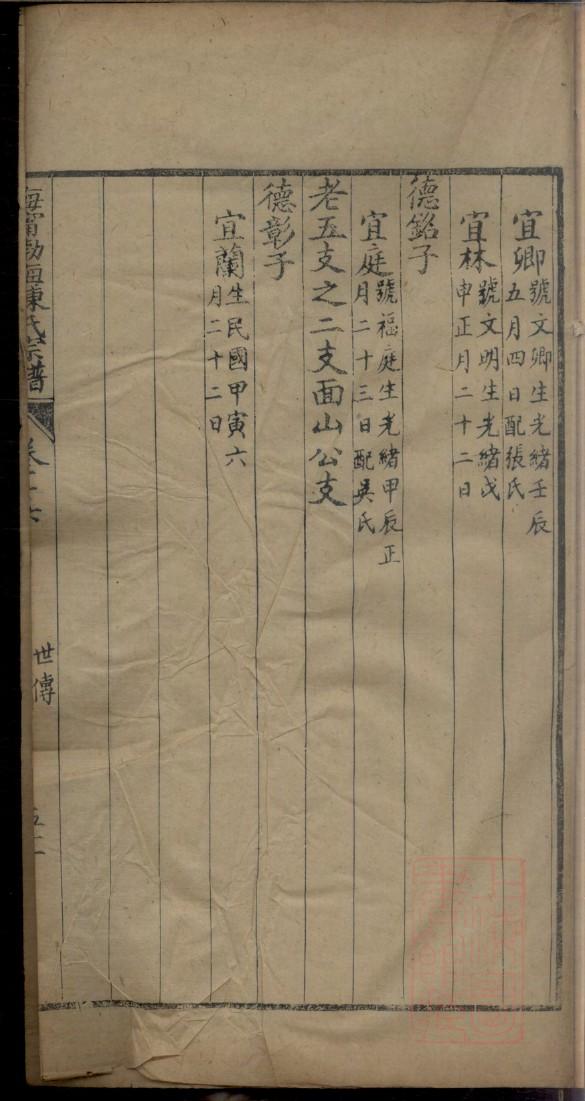 宜卿號文卿生光緒壬辰
五月四日配張氏
宜林號文明生光緒戊
申正月二十二日
德銘子
宜庭號福庭生光緒甲辰正
月二十三日配吳氏
老五支之二支面山公支
德彰子
宜蘭生民國甲寅六
月二十二日
海甯渤海陳氏宗譜
世傳